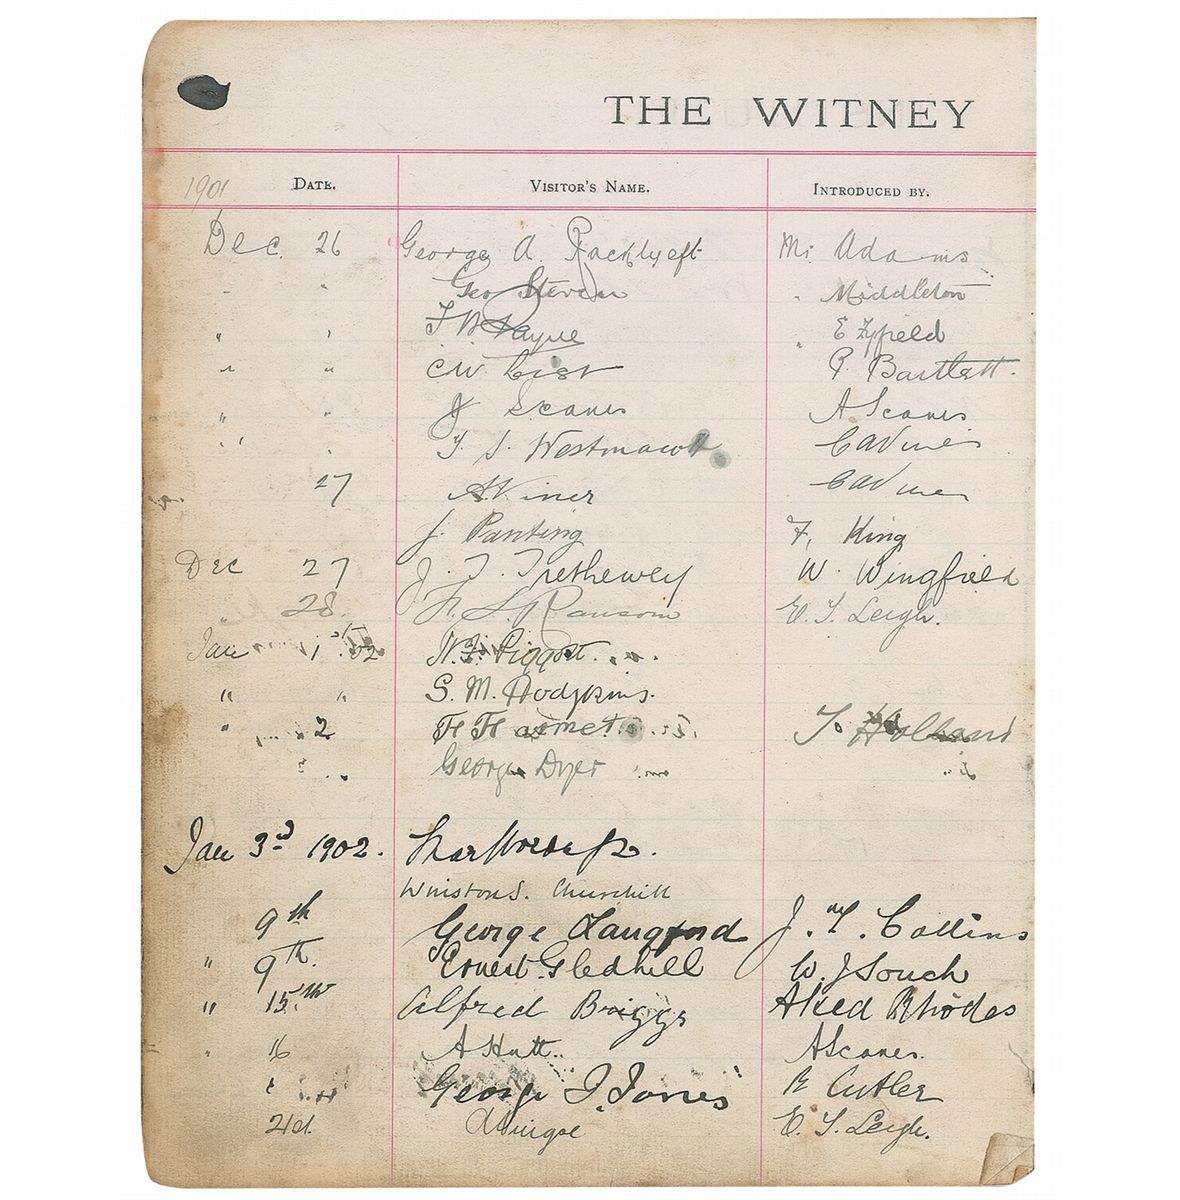 THE WITNEY
1901 DATE. VISITOR'S NAME. INTRODUCED BY.
Dec. 26 George A. Racklyeft Mr Adams
" " Geo Steven " Middleton
" " F W Payne " E Fyfield
" " C W List P. Bartlett.
" " J Scanes A Scanes
" " T. S. Westmacott
27 A Viner
J. Panting F, King
Dec 27 J. T. Trethewey W. Wingfield
" 28. Ransom E. T. Leigh.
Jan 1st 02 W. F. Piggott.
" " S. M. Hodgkins.
" 2 Holland
George Dyer
Jan 3rd 1902.
Winston S. Churchill
9th George Langford J. Collins
" 9th. Ernest Gledhill W. J Souch
" 15th Alfred Briggs Alfred Rhodes
" 16 A Hutt. A Scanes.
George J. Jones R Cutler
21st. E. T. Leigh.